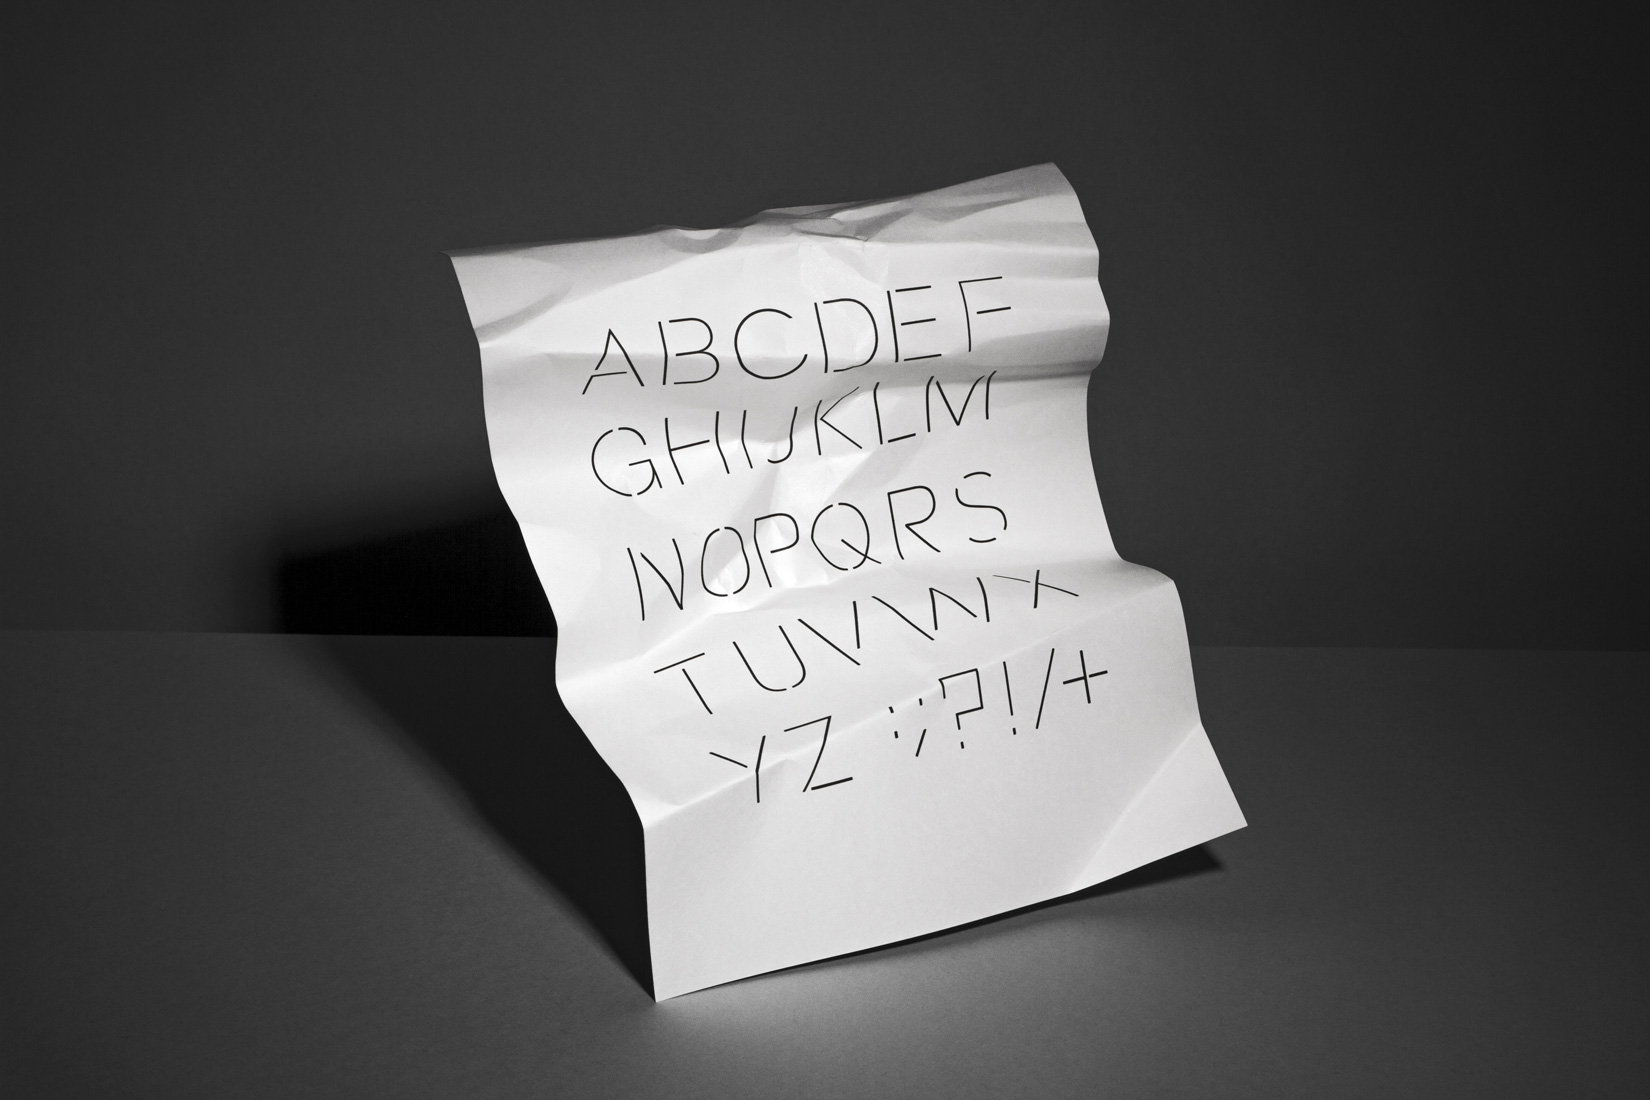 ABCDEF
GHIJKLM
NOPQRS
TUVWX
YZ :;?!/+